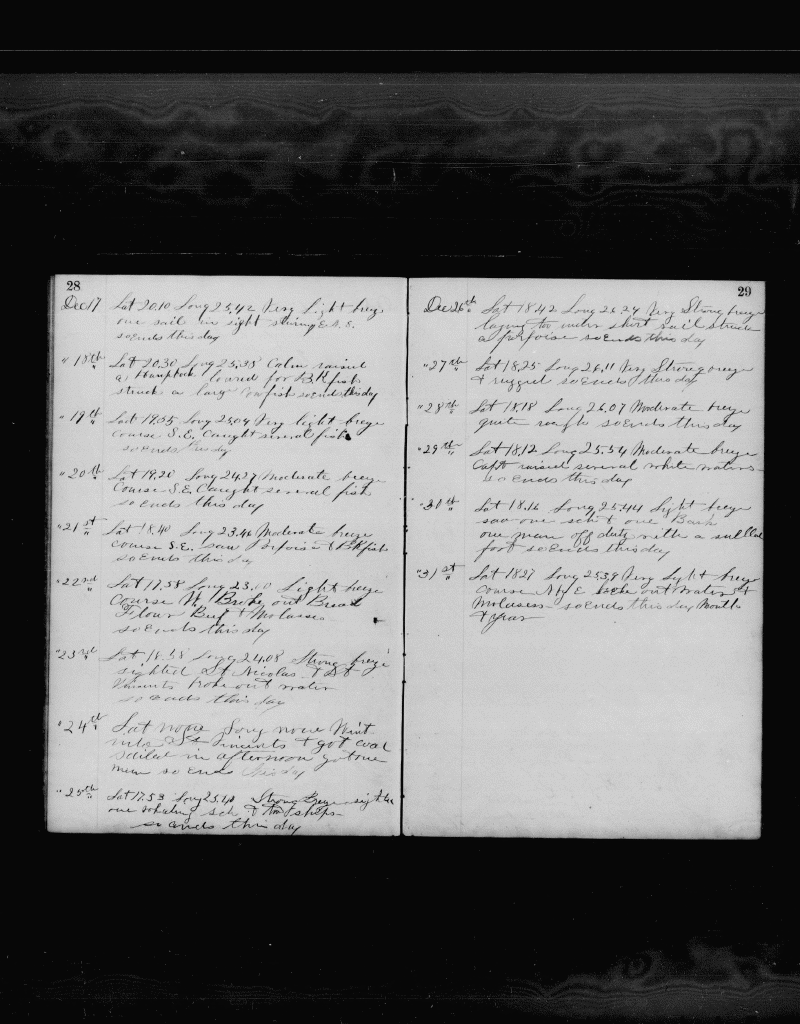 28
Dec 17 Lat 20.10 Long 25.42 Very Light breeze
one sail in sight
so Ends this day
" 18th " Lat 20.30 Long 25.35 Calm raised
a Humpback lowerd for B.K fish
struck a large Cow fish so Ends this day
" 19th " Lat 19.55 Long 25.04 Very light breeze
Course S.E. Caught several fish
so Ends this day
" 20th " Lat 19.20 Long 24.27 Moderate breeze
Course S.E Caught several fish
so Ends this day
" 21st " Lat 18.40 Long 23.46 Moderate breeze
Course S.E. saw Porpoise & Bkfish
so Ends this day
" 22nd " Lat 17.58 Long 23.10 Light breeze
Course W. Broke out Bread
Flour Beef & Molasses
so Ends this day
" 23rd " Lat Long 24.08 Strong breeze
sighted St Nicolas & St
Vincents Broke out water
so Ends this day
" 24th " Lat none Long none Went
into St Vincents & got coal
sailed in afternoon got one
man so Ends this day
" 25th " Lat 17.53 Long 25.40 Strong breeze sighted
one whaling sch & two ships
so Ends this day
29
Dec 26th " Lat 18.42 Long 26.24 Very Strong breeze
laying too under short sail struck
a porpoise so Ends this day
" 27th " Lat 18.25 Long 26.11 Very Strong breeze
& rugged so Ends this day
" 28th " Lat 18.18 Long 26.07 Moderate breeze
quite rough so Ends this day
" 29th " Lat 18.12 Long 25.54 Moderate breeze
Capt raised several white waters
so Ends this day
" 30th " Lat 18.16 Long 25.44 Light breeze
saw one sch & one Bark
one man off duty with a
foot so Ends this day
" 31st " Lat 18.27 Long 25.39 Very Light breeze
Course N by E broke out water &
Molasses so Ends this day Month
& year